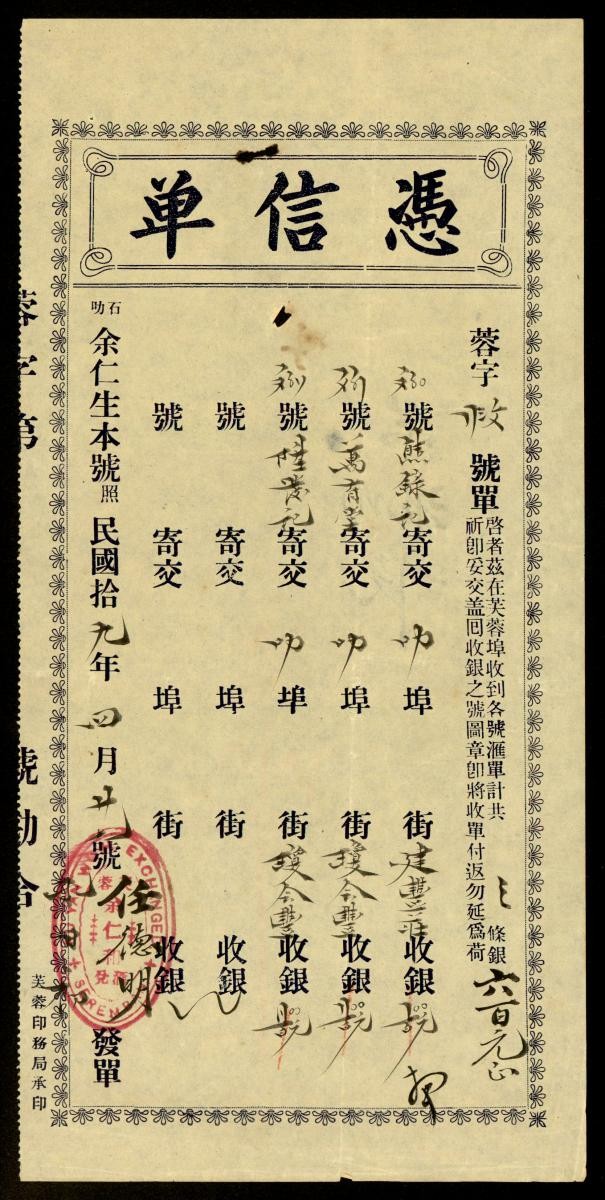 憑信单
蓉字 收 號單
啓者茲在芙蓉埠收到各號滙單計共 三 條銀 六百元正
祈卽妥交盖囘收銀之號圖章卽將收單付返勿延爲荷
號 熊錄記 寄交 叻 埠 街 建豐庄 收銀
號 萬育堂 寄交 叻 埠 街 瓊合豐 收銀
號 陸茂記 寄交 叻 埠 街 瓊合豐 收銀
號 寄交 埠 街 收銀
號 寄交 埠 街 收銀
石叻 余仁生本號照 民國拾九年四月廿八號 任德明 發單
EXCHANGE
余仁
SEREMBAN
蓉字第 號 合
芙蓉印務局承印